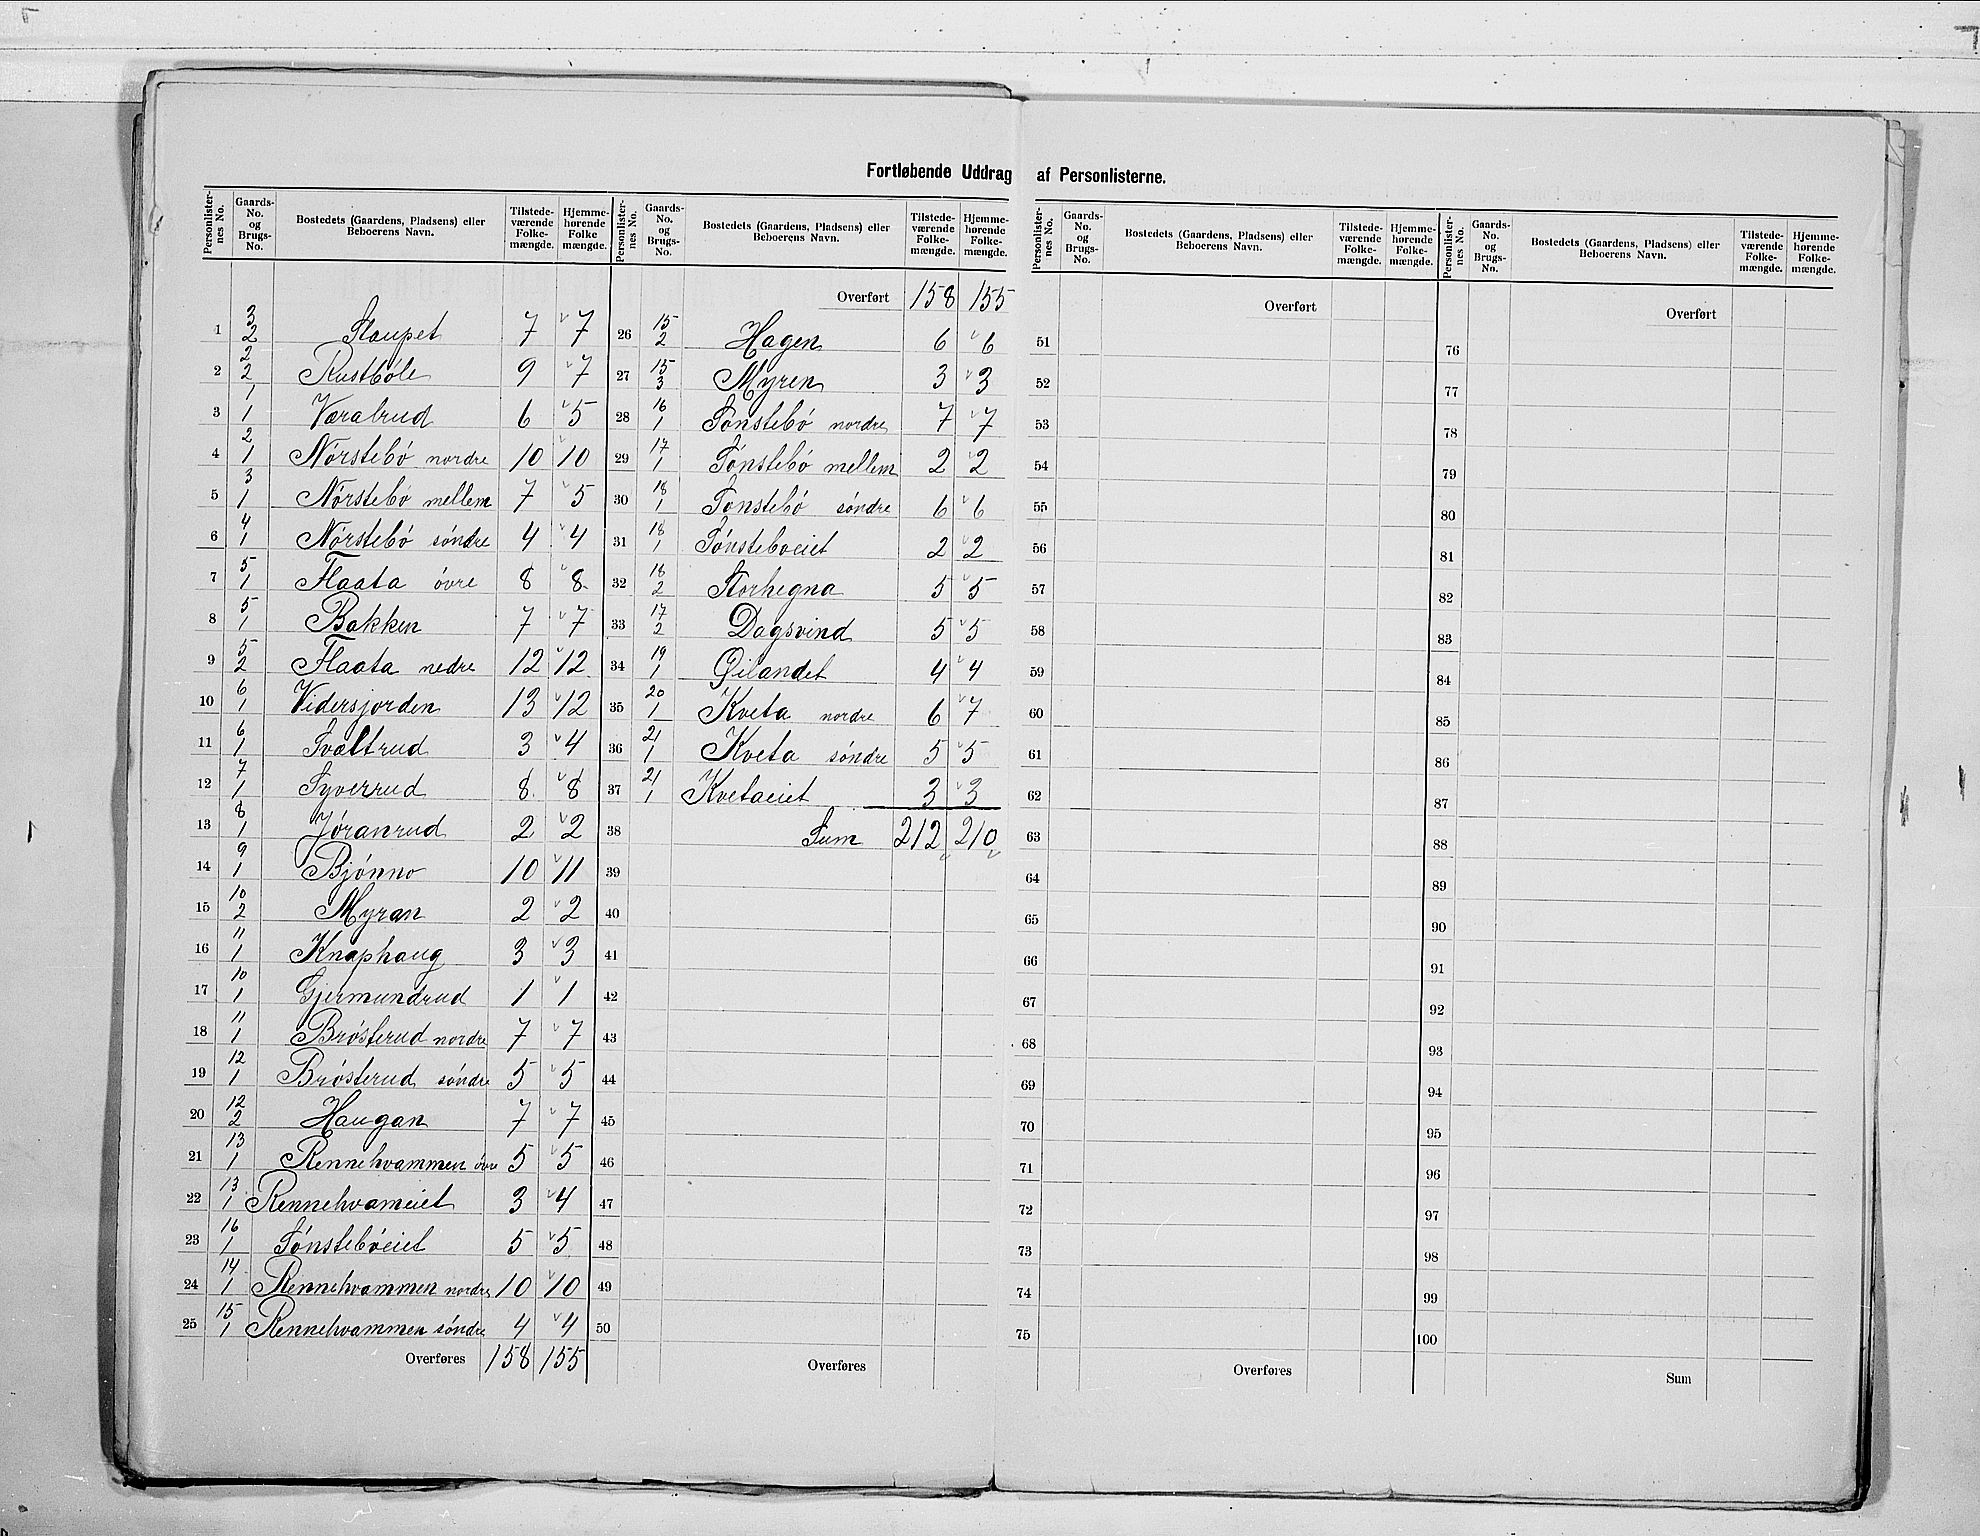 Fortløbende Uddrag af Personlisterne.
Personlisternes No. | Gaards-No. og Brugs-No. | Bostedets (Gaardens, Pladsens) eller Beboerens Navn. | Tilstedeværende Folkemængde. | Hjemmehørende Folkemængde.
1 | 3/2 | Staupet | 7 | 7
2 | 2/2 | Rustbøle | 9 | 7
3 | 1/1 | Væralrud | 6 | 5
4 | 2/1 | Nørstebø nordre | 10 | 10
5 | 3/1 | Nørstebø mellem | 7 | 5
6 | 4/1 | Nørstebø søndre | 4 | 4
7 | 5/1 | Flaata øvre | 8 | 8
8 | 5/1 | Bakken | 7 | 7
9 | 5/2 | Flaata nedre | 12 | 12
10 | 6/1 | Vidersjorden | 13 | 12
11 | 6/1 | Svaltrud | 3 | 4
12 | 7/1 | Syverrud | 8 | 8
13 | 8/1 | Jøranrud | 2 | 2
14 | 9/1 | Bjønno | 10 | 11
15 | 10/2 | Myran | 2 | 2
16 | 11/1 | Knaphaug | 3 | 3
17 | 10/1 | Gjermundrud | 1 | 1
18 | 11/1 | Brøsterud nordre | 7 | 7
19 | 12/1 | Brøsterud søndre | 5 | 5
20 | 12/2 | Haugan | 7 | 7
21 | 13/1 | Rennehvammen øvre | 5 | 5
22 | 13/1 | Rennehvameiet | 3 | 4
23 | 16/1 | Tønstebøeiet | 5 | 5
24 | 14/1 | Rennehvammen nordre | 10 | 10
25 | 15/1 | Rennehvammen søndre | 4 | 4
Overføres | 158 | 155
Personlisternes No. | Gaards-No. og Brugs-No. | Bostedets (Gaardens, Pladsens) eller Beboerens Navn. | Tilstedeværende Folkemængde. | Hjemmehørende Folkemængde.
Overført | 158 | 155
26 | 15/2 | Hagen | 6 | 6
27 | 15/3 | Myren | 3 | 3
28 | 16/1 | Tønstebø nordre | 7 | 7
29 | 17/1 | Tønstebø mellem | 2 | 2
30 | 18/1 | Tønstebø søndre | 6 | 6
31 | 18/1 | Tønsteboeiet | 2 | 2
32 | 18/2 | Storhegna | 5 | 5
33 | 17/2 | Dagsvind | 5 | 5
34 | 19/1 | Øilandet | 4 | 4
35 | 20/1 | Kveta nordre | 6 | 7
36 | 21/1 | Kveta søndre | 5 | 5
37 | 21/1 | Kvetaeiet | 3 | 3
38 | Sum | 212 | 210
39
40
41
42
43
44
45
46
47
48
49
50
Overføres
Personlisternes No. | Gaards-No. og Brugs-No. | Bostedets (Gaardens, Pladsens) eller Beboerens Navn. | Tilstedeværende Folkemængde. | Hjemmehørende Folkemængde.
Overført
51
52
53
54
55
56
57
58
59
60
61
62
63
64
65
66
67
68
69
70
71
72
73
74
75
Overføres
Personlisternes No. | Gaards-No. og Brugs-No. | Bostedets (Gaardens, Pladsens) eller Beboerens Navn. | Tilstedeværende Folkemængde. | Hjemmehørende Folkemængde.
Overført
76
77
78
79
80
81
82
83
84
85
86
87
88
89
90
91
92
93
94
95
96
97
98
99
100
Sum